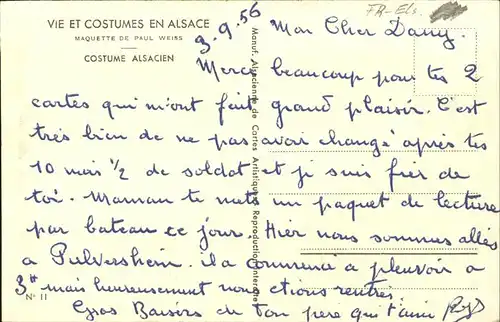 FR-Els.
VIE ET COSTUMES EN ALSACE
MAQUETTE DE PAUL WEISS
COSTUME ALSACIEN
3.9.56
Mon Cher Dany.
Merci beaucoup pour tes 2
cartes qui m'ont fait grand plaisir. C'est
très bien de ne pas avoir changé après tes
10 mois 1/2 de soldat et je suis fier de
toi. Maman te mets un paquet de lecture
par bateau ce jour. Hier nous sommes allés
a Pulversheim. il a commencé a pleuvoir a
3H mais heureusement nous étions rentrés.
Gros Baisers de Ton père qui t'aime
N° 11
Manuf. Alsacienne de Cartes Artistiques Reproduction interdite